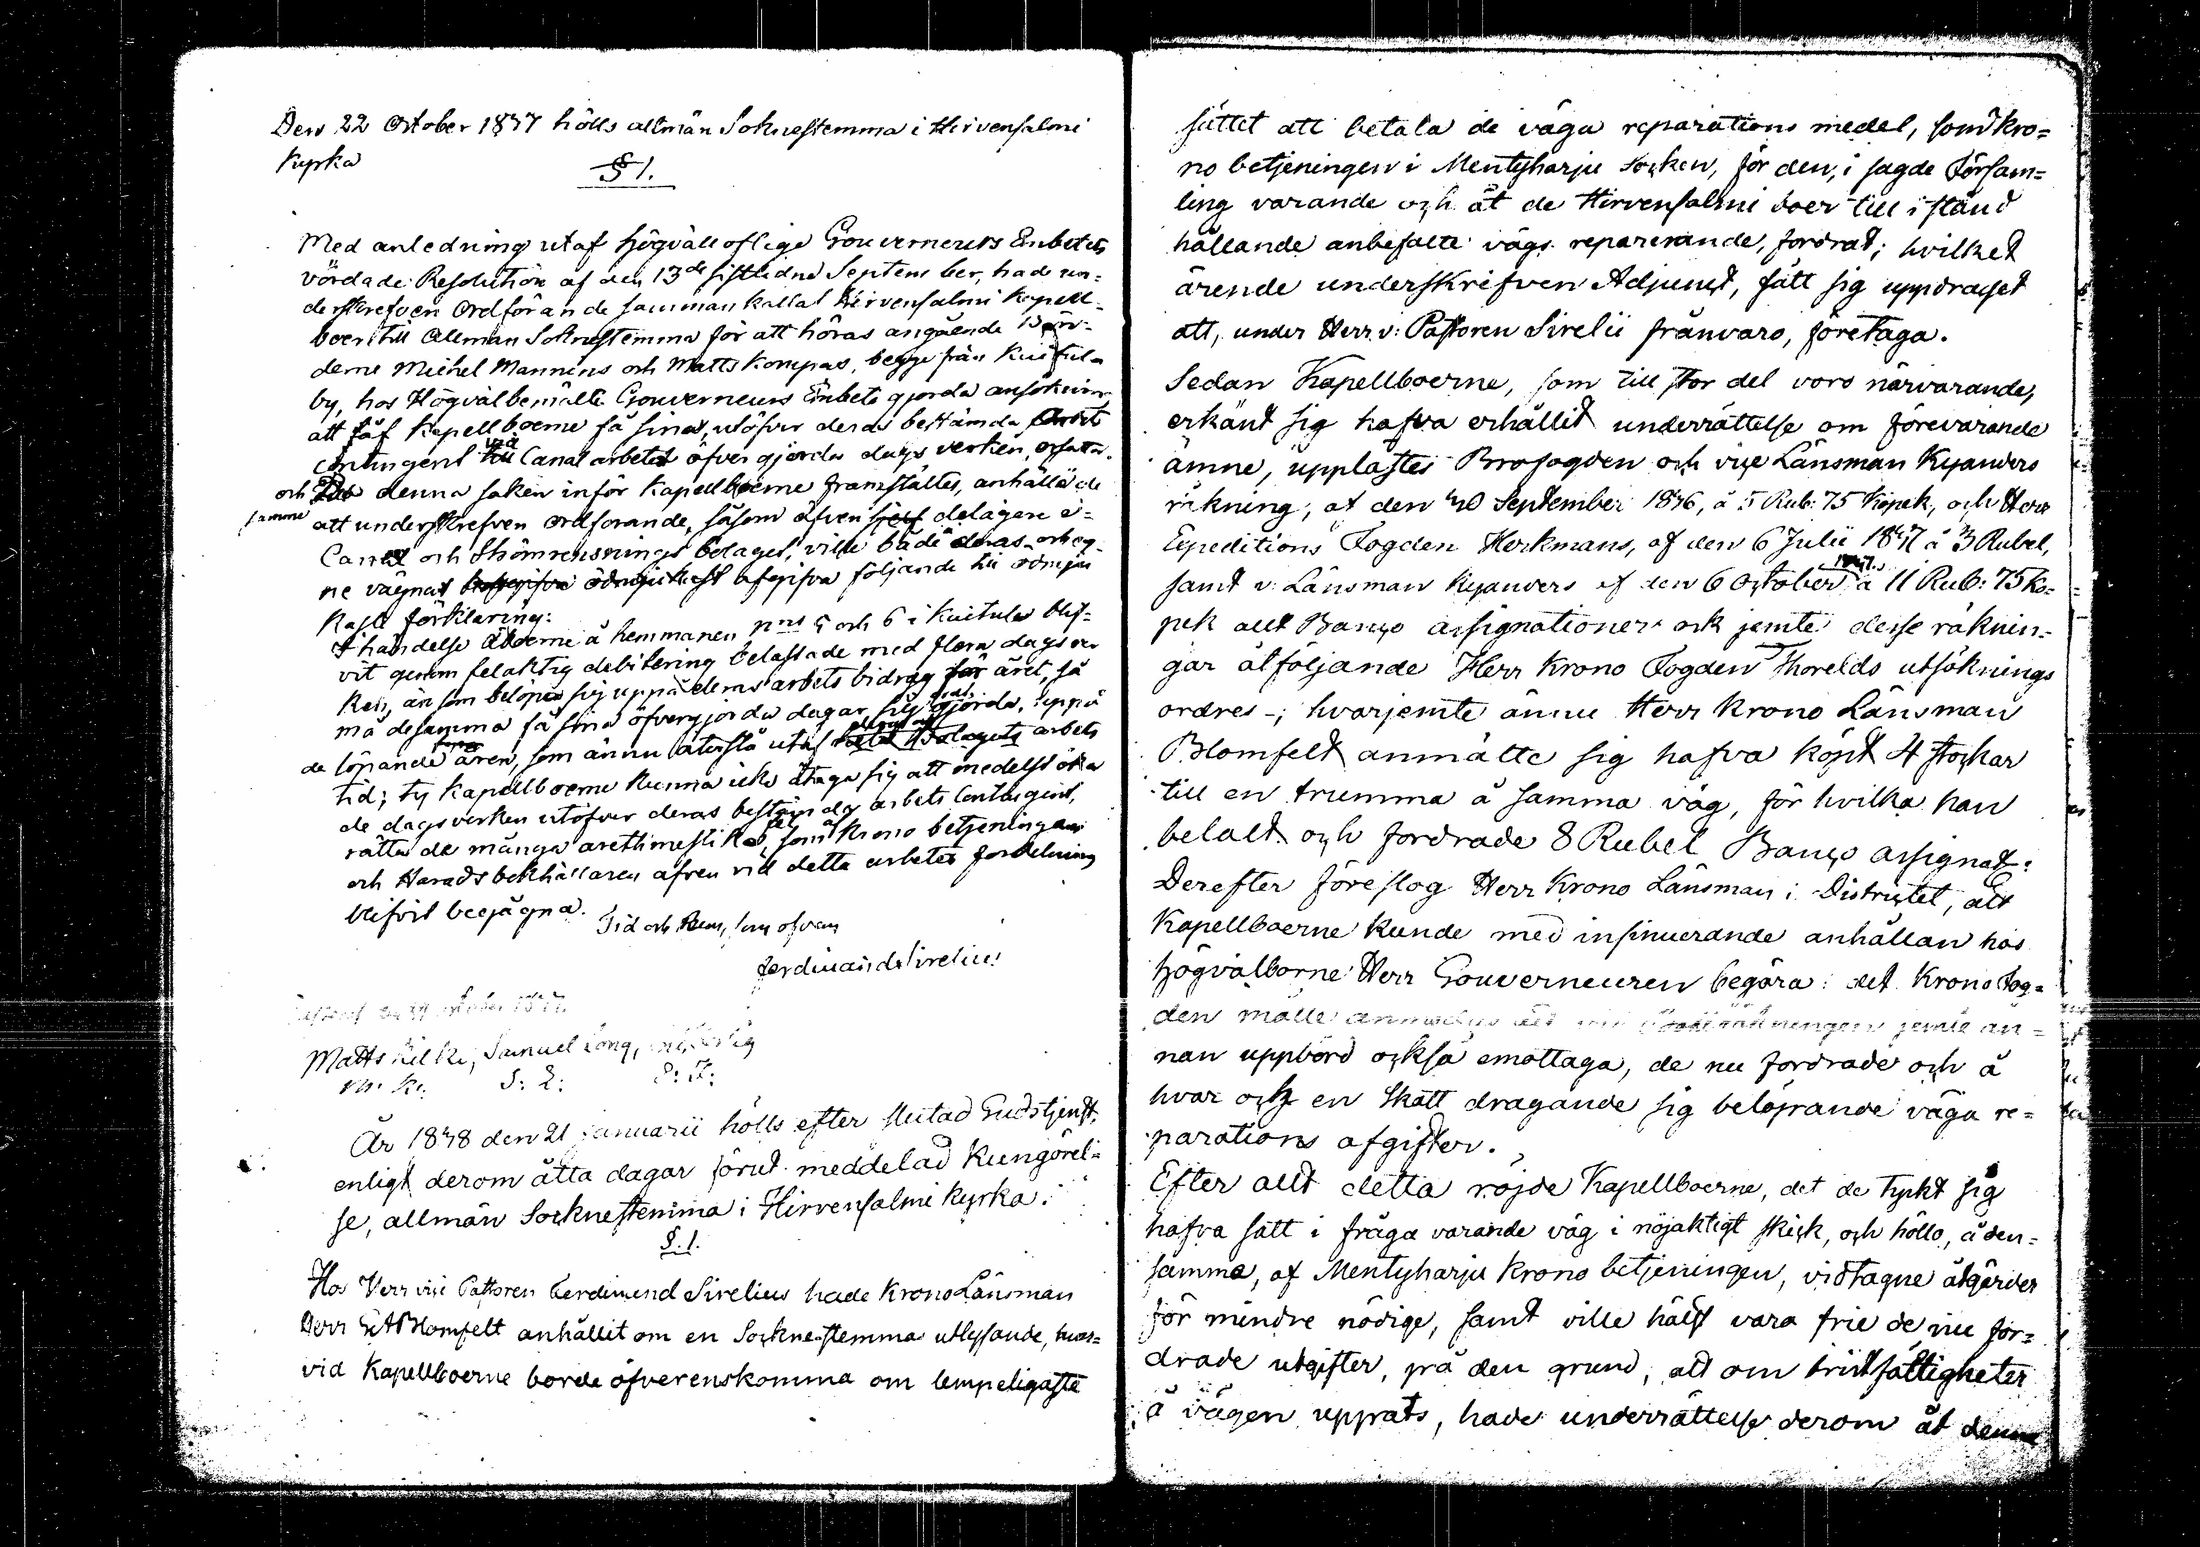 Den 22 October 1837 hölls allmän Soknestemma i Hirvensalmi
Kyrka
§ 1.
Med anledning utaf Högvälloflige Gouverneurs Embetets
vördade Resolution af den 13de sistledne September, hade un-
derskrefven Ordförande sammankallat Hirvensalmi Kapell-
boer till Allmän Soknestemma för att höras angående Bön-
derne Michel Manninns och Matts Kompas, begge från Kuitula
by, hos Högvälbemälte Gouverneurs Embete gjorda ansökning
att få af Kapellboerne få sina, utöfver deras bestämda Arbets
contingent vid Canal arbetet öfver gjorda dags verken, ersatta.
och denna saken inför Kapellboerne framställtes, anhållade
samme att underskrefven ordförande, såsom äfven delägen i
Canal och Strömrensnings bolaget, ville både deras och eg-
ne vägnar afgifva följande till ödmju
kast förklaring:
I händelse Åboerne å hemmanen nris 5 och 6 i Kuitula blif-
vit genom felaktig debitering belastade med flera dagsver
ken, än som belöper sig uppå deras arbets bidrag för året, så
må desamma få sina öfvergjorda dagar sig gjorda, uppå
de löpande åren, som ännu återstå utaf arbets
tid; ty Kapellboerne kunna icke åtaga sig att medelst öka
de dagsverken utöfver deras bestämda arbets Contingent,
rätta de många arethmetiska fel, som Krono betjeningen
och Haradsbokhållaren äfven vid detta arbetes fördelning
blifvit begågna.
Tid och Rum, som ofvan
Ferdinand Sirelius
Matts Kilki, Samuel Long,
S: L:
År 1838 den 21 januarii hölls efter slutad Gudstjenst,
enligt derom åtta dagar förut meddelad Kungörel-
se, allmän Socknestemma i Hirvensalmi Kyrka.
§. 1.
Hos Herr vice Pastoren Ferdinand Sirelius hade Krono Länsman
Herr Blomfelt anhållit om en Socknestemmas utlysande, hvar-
vid Kapellboerne borde öfverenskomma om lempeligaste
sättet att betala de väga reparations medel, som kro-
no betjeningen i Mentyharju socken, för den, i sagde Försam-
ling varande och åt de Hirvensalmi boer till i stånd
hållande anbefalte vägs reparerande, fordrat; hvilket
ärende underskrifven Adjunct, fått sig uppdraget
att, under Herr v: Pastoren Sirelii frånvaro, företaga.
Sedan Kapellboerne, som till stor del voro närvarande,
erkänt sig hafva erhållit underrättelse om förevarande
ämne, upplästes Brofogden och vice Länsman Kyanders
räkning, af den 30 September 1836, å 5 Rub: 75 Kopek, och Herr
Expeditions Fogden Herkmans, af den 6 Julii 1837 å 3 Rubel,
samt v: Länsman Kyanders af den 6 October 1837. å 11 Rub: 75 Ko-
pek allt Banco assignationer och jemte desse räknin-
gar åtföljande Herr Krono Fogden Thorelds utsöknings
ordres -; hvarjemte ännu Herr Krono Länsman
Blomfelt anmälte sig hafva köpt 4 stockar
till en trumma å samma väg, för hvilka han
betalt och fordrade 8 Rubel Banco assignat:
Derefter föreslog Herr Krono Länsman i Districtet, att
Kapellboerne kunde med insinuerande anhållan hos
Högvälborne Herr Gouverneuren begära: det Krono Fog-
den måtte anmodas att vid jemte an-
nan uppbörd också emottaga, de nu fordrade och å
hvar och en Skatt dragande sig belöpande väga re-
parations afgifter.
Efter allt detta röjde Kapellboerne, det de tyckt sig
hafva satt i fråga varande väg i nöjaktigt skick, och höllo, å den-
samma, af Mentyharju Krono betjeningen, vidtagne åtgärder
för mindre nödige, samt ville hälst vara frie de nu for-
drade utgifter, på den grund, att om bristfälligheter
å vägen uppväts, hade underrättelse derom åt denna